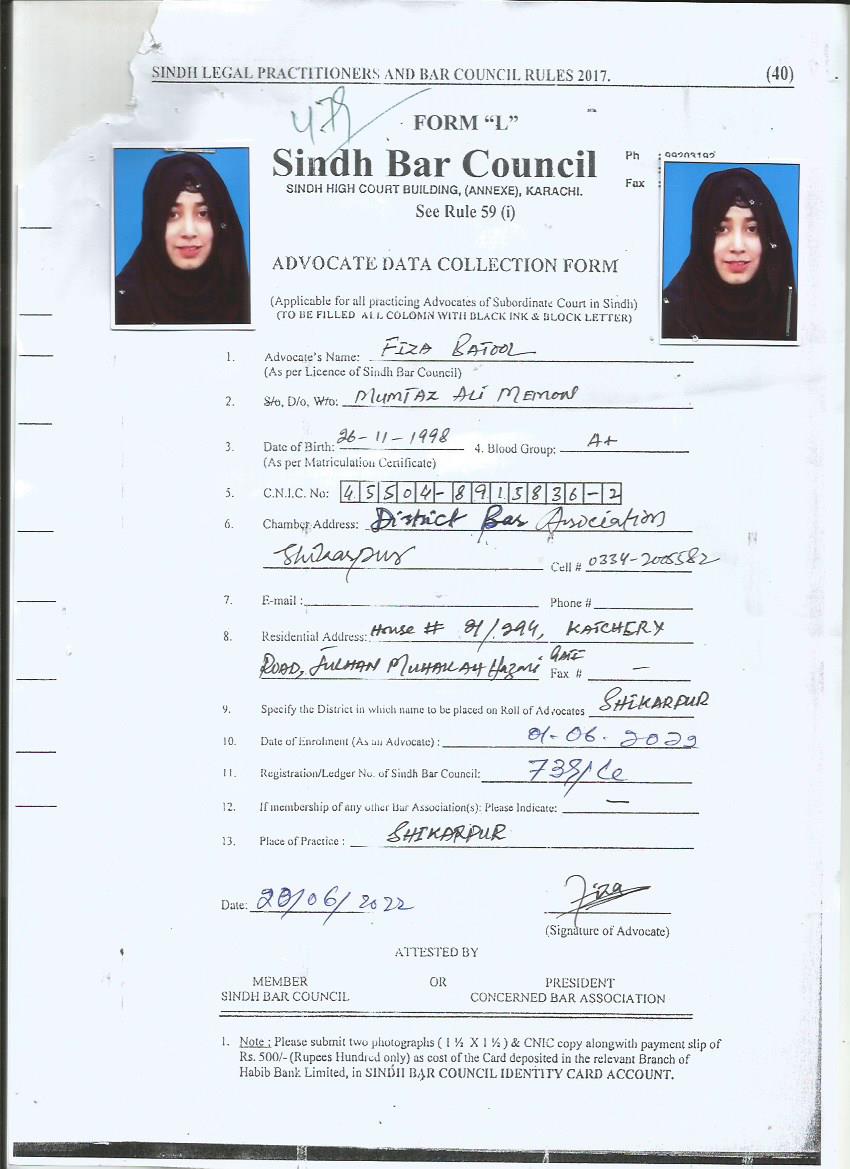 SINDH LEGAL PRACTITIONERS AND BAR COUNCIL RULES 2017. (40)
FORM “L”
Sindh Bar Council
Ph :
SINDH HIGH COURT BUILDING, (ANNEXE), KARACHI.
Fax :
See Rule 59 (i)
ADVOCATE DATA COLLECTION FORM
(Applicable for all practicing Advocates of Subordinate Court in Sindh)
(TO BE FILLED ALL COLOMN WITH BLACK INK & BLOCK LETTER)
1. Advocate's Name: FIZA BATOOL
(As per Licence of Sindh Bar Council)
2. S/o, D/o, W/o: MUMTAZ ALI MEMON
3. Date of Birth: 26-11-1998 4. Blood Group: A+
(As per Matriculation Certificate)
5. C.N.I.C. No: 45504-8915836-2
6. Chamber Address: District Bar Association
Shikarpur Cell # 0334-2005582
7. E-mail : Phone #
8. Residential Address: House # 21/294, KATCHERY
ROAD, MUHALLAH Hazari GATE Fax # —
9. Specify the District in which name to be placed on Roll of Advocates SHIKARPUR
10. Date of Enrolment (As an Advocate) : 01-06.
11. Registration/Ledger No. of Sindh Bar Council:
12. If membership of any other Bar Association(s): Please Indicate: —
13. Place of Practice : SHIKARPUR
Date: /06/2022 Fiza
(Signature of Advocate)
ATTESTED BY
MEMBER OR PRESIDENT
SINDH BAR COUNCIL CONCERNED BAR ASSOCIATION
1. Note : Please submit two photographs ( 1 ½ X 1 ½ ) & CNIC copy alongwith payment slip of
Rs. 500/- (Rupees Hundred only) as cost of the Card deposited in the relevant Branch of
Habib Bank Limited, in SINDH BAR COUNCIL IDENTITY CARD ACCOUNT.